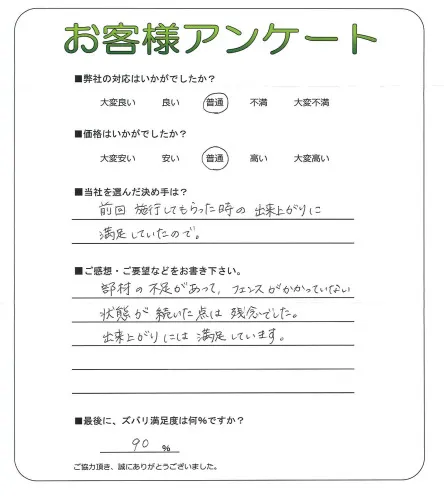 お客様アンケート
■弊社の対応はいかがでしたか？
大変良い 良い 普通 不満 大変不満
■価格はいかがでしたか？
大変安い 安い 普通 高い 大変高い
■当社を選んだ決め手は？
前回 施行してもらった時の 出来上がりに
満足していたので。
■ご感想・ご要望などをお書き下さい。
部材の不足があって、フェンスがかかっていない
状態が 続いた点は 残念でした。
出来上がりには 満足しています。
■最後に、ズバリ満足度は何％ですか？
90 %
ご協力頂き、誠にありがとうございました。